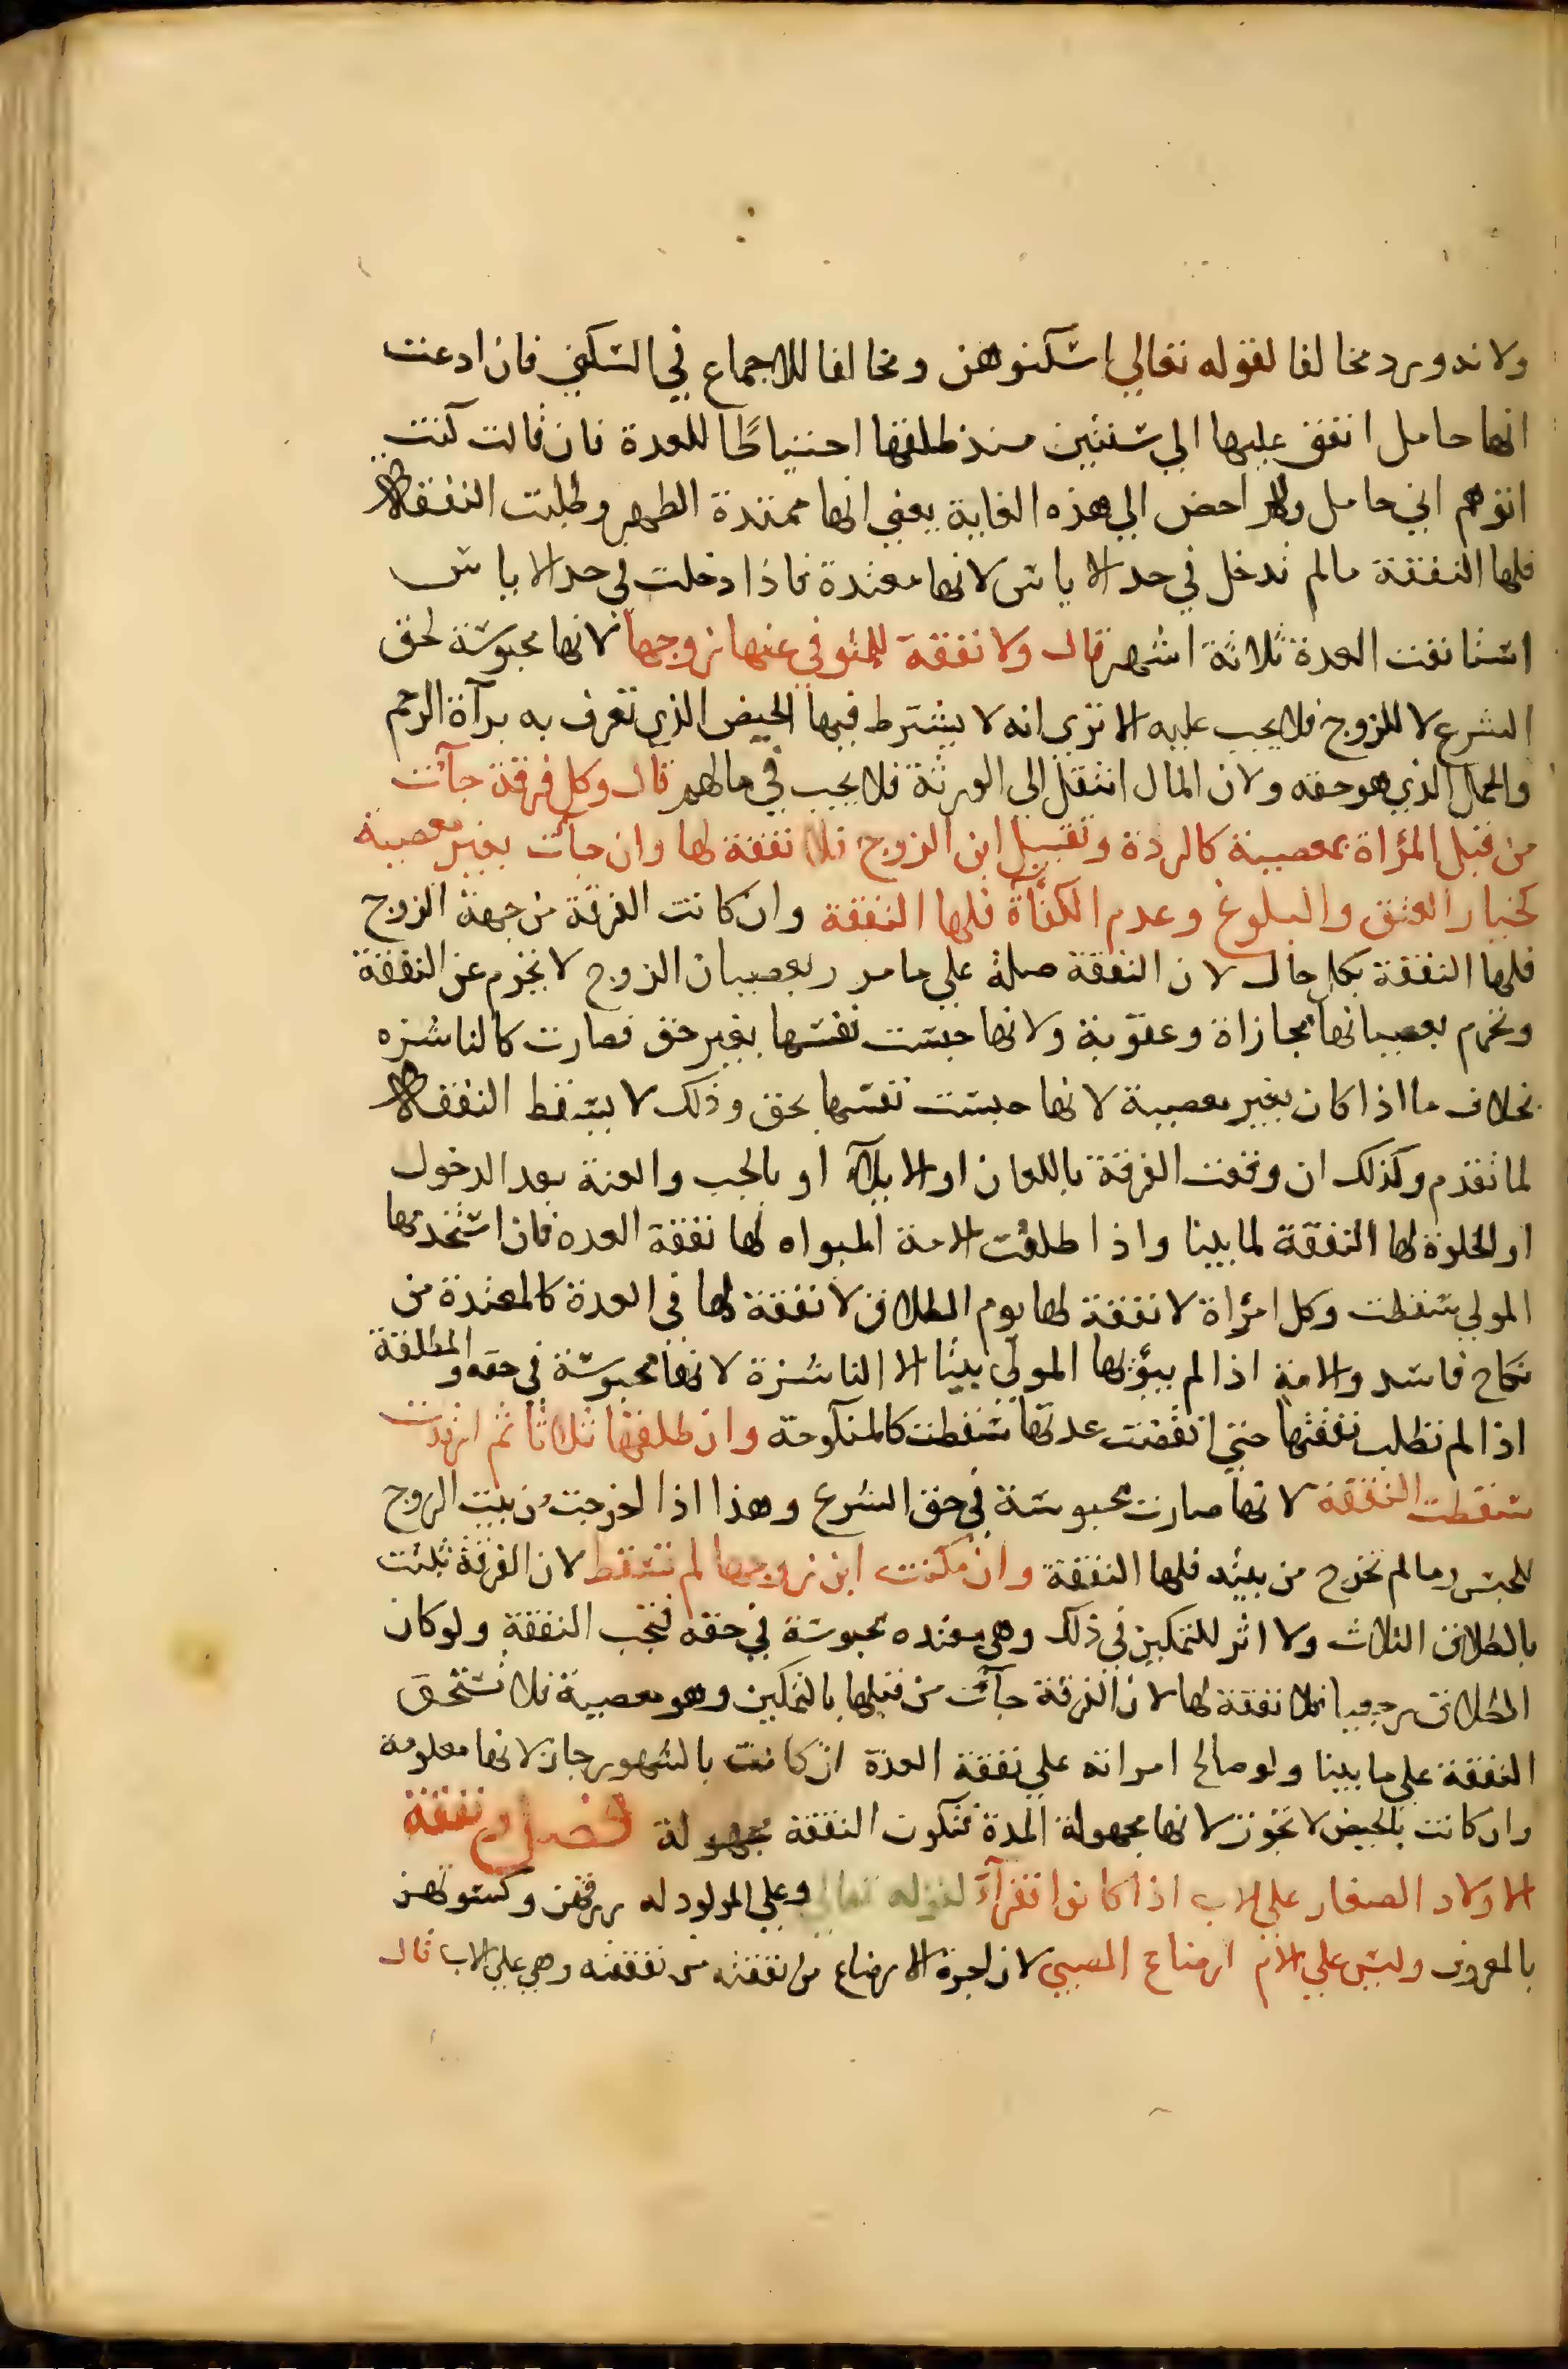 ولانه ورد مخالفا لقوله تعالى اسكنوهن ومخالفا للاجماع في السكنى فان ادعت
انها حامل انفق عليها الي سنتين منذ طلقها احتياطًا للعدة فان قالت كنت
اتوهم اني حامل ولم احض الي هذه الغاية يعني انها ممتدة الطهر وطلبت النفقة
فلها النفقة مالم تدخل في حد الاياس لانها معتدة فاذا دخلت في حد الاياس
استانفت العدة ثلاثة اشهر قال ولا نفقة للمتوفي عنها زوجها لانها محبوسة لحق
الشرع لا للزوج فلا يجب عليه الا تري انه لا يشترط فيها الحيض الذي تعرف به برآة الرحم
والحمل الذي هو حقه ولان المال انتقل الى الورثة فلا يجب في مالهم قال وكل فرقة جآئت
من قبل المرأة بمعصية كالردة وتقبيل ابن الزوج فلا نفقة لها وان جآئت بغير معصية
كخيار العتق والبلوغ وعدم الكفآة فلها النفقة وان كانت الفرقة من جهة الزوج
فلها النفقة بكل حال لان النفقة صلة علي ما مر وبعصيان الزوج لا تحرم عن النفقة
وتحرم بعصيانها مجازاة وعقوبة ولانها حبست نفسها بغير حق فصارت كالناشزه
بخلاف ما اذا كان بغير معصية لانها حبست نفسها بحق وذلك لا يسقط النفقة
لما تقدم وكذلك ان وقعت الفرقة باللعان او الايلآء او بالجب والعنة بعد الدخول
او الخلوة لها النفقة لما بينا واذا طلقت الامة المبواه لها نفقة العده فان استخدمها
المولي سقطت وكل امرأة لا نفقة لها يوم الطلاق لا نفقة لها في العدة كالمعتدة من
نكاح فاسد والامة اذا لم يبوئها المولي بيتا الا الناشزة لانها محبوسة في حقه والمطلقة
اذا لم تطلب نفقتها حتي انقضت عدتها سقطت كالمنكوحة وان طلقها ثلاثا ثم ارتدت
سقطت النفقة لانها صارت محبوسة في حق الشرع وهذا اذا اخرجت من بيت الزوج
للحبس وما لم تخرج من بيته فلها النفقة وان مكنت ابن زوجها لم تسقط لان الفرقة ثبتت
بالطلاق الثلاث ولا اثر للتمكين في ذلك وهي معتده محبوسة في حقه فتجب النفقة ولو كان
الطلاق رجعيا فلا نفقة لها لان الفرقة جآئت من قبلها بالتمكين وهو معصية فلا تستحق
النفقة علي ما بينا ولو صالح امراته علي نفقة العدة ان كانت بالشهور جاز لانها معلومة
وان كانت بالحيض لا تجوز لانها مجهولة المدة فتكون النفقة مجهولة فصل ونفقة
الاولاد الصغار علي الاب اذا كانوا فقرآء لقوله تعالي وعلي المولود له رزقهن وكسوتهن
بالمعروف وليس علي الام ارضاع الصبي لان اجرة الارضاع من نفقته ونفقته وهي علي الاب قال